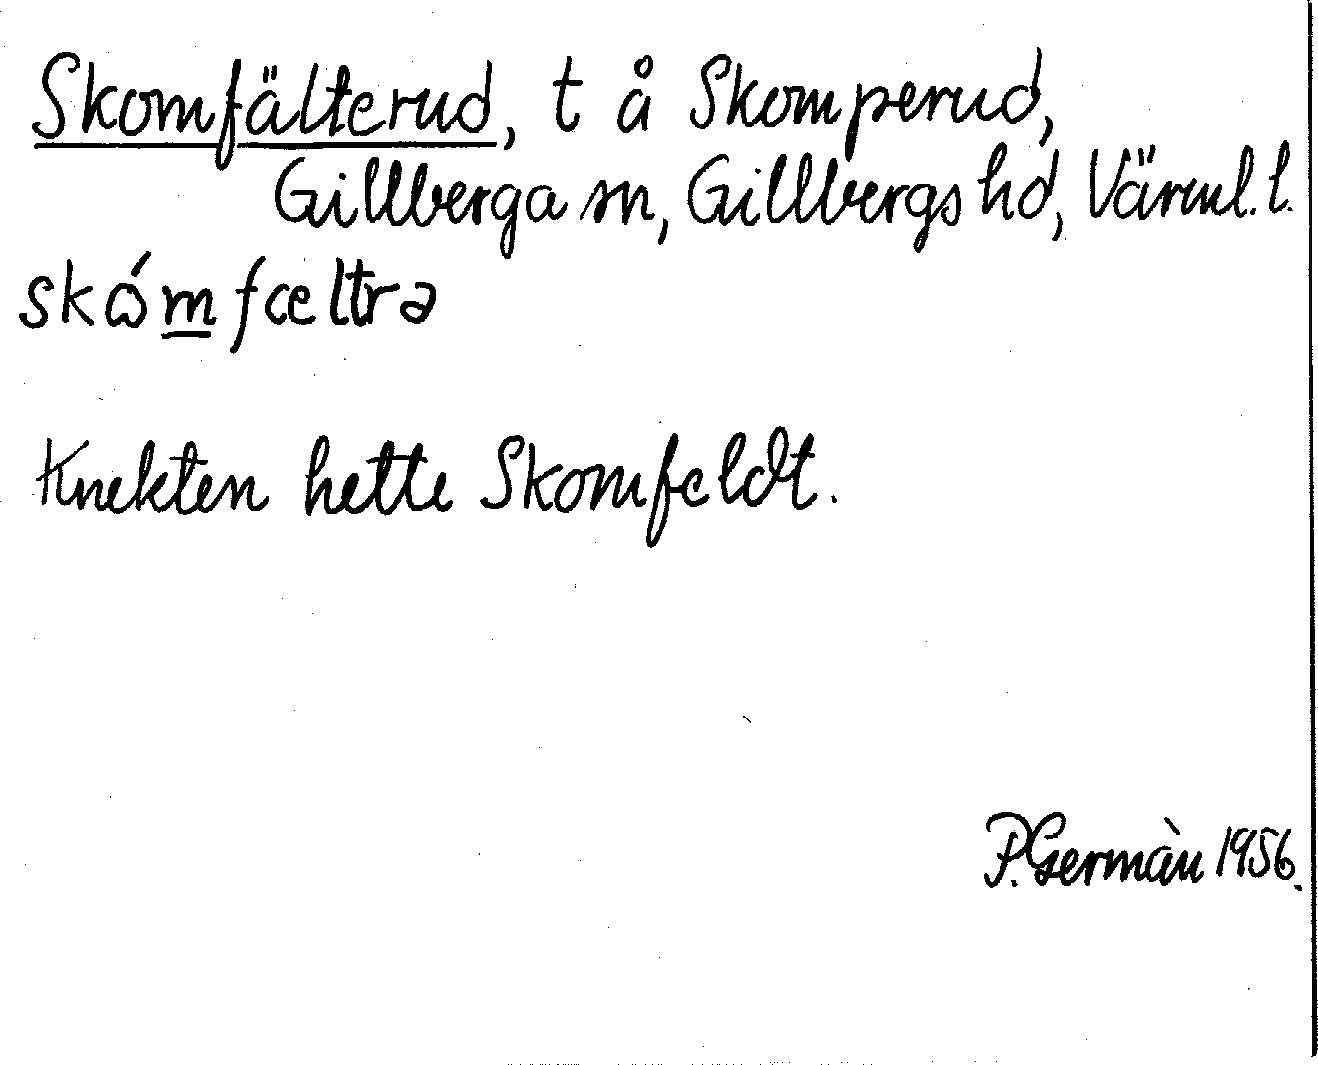 Skomfälterud, t å Skomperud,
Gillberga sn, Gillbergs hd, Värml. l.
skɷ́m̲fæltrə
Knekten hette Skomfeldt.
P. Germàn 1956.